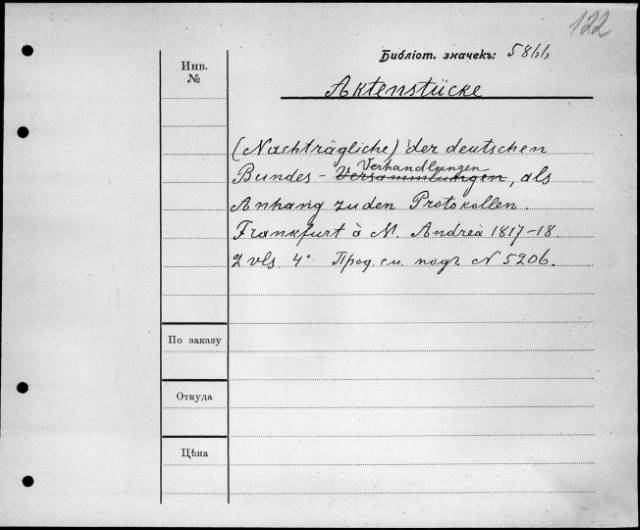 122
Библіот. значекъ: 5866
Инв.
№
Aktenstücke
(Nachträgliche) der deutschen
Verhandlungen
Bundes - Versammlungen, als
Anhang zu den Protokollen.
Frankfurt à M. Andreä 1817-18.
2 vls. 4° Прод. см. подъ N 5206.
По заказу
Откуда
Цѣна